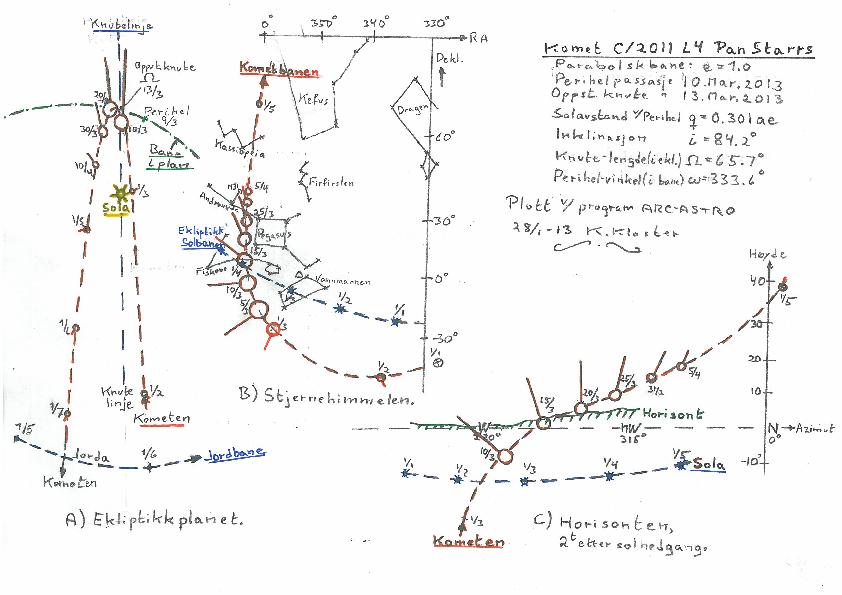 Komet C/2011 L4 PanStarrs
Parabolsk bane: e=1.0
Perihelpassasje 10.Mar.2013
Oppst.knute " 13.Mar.2013
Solavstand v/Perihel q=0.301ae
Inklinasjon i=84.2°
Knute-lengde(ekl.) Ω=65.7°
Perihel-vinkel(i bane) ω=333.6°
Plott v/ program ARC-ASTRO
28/1-13 K.Kloster
Knutelinje
Oppst.knute
Ω
13/3
20/3
Perihel
9/3
30/3
10/3
Bane i plan
10/4
1/3
Sola
1/5
1/6
1/2
Knute
linje
Kometen
1/7
1/5
Jorda
1/6
Jordbane
Kometen
A) Ekliptikkplanet.
0° 350° 340° 330°
RA
Dekl.
Kometbanen
1/5
Kefus
Dragen
60°
Kassiopeia
Firfirslen
M31
5/4
Andromeda
25/3
30°
Ekliptikk
Solbanen
Pegasus
15/3
Fiskene
1/4
Vannmannen
0°
10/3
1/2
1/1
5/3
1/3
-30°
1/1
1/2
B) Stjernehimmelen.
Høyde
40
1/5
30
20
10
5/4
31/3
25/3
20/3
15/3
Horisont
W
270°
NW
315°
N
0°
Azimut
-10°
10/3
1/1
1/2
1/3
1/4
1/5
Sola
1/3
Kometen
C) Horisonten,
2t etter solnedgang.